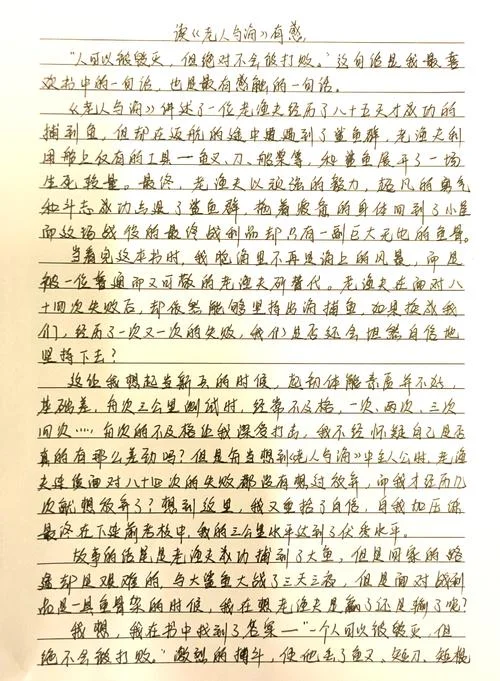 读《老人与海》有感
"人可以被毁灭，但绝对不会被打败。"这句话是我最喜
欢书中的一句话，也是最有感触的一句话。
《老人与海》讲述了一位老渔夫经历了八十五天才成功的
捕到鱼，但却在返航的途中遭遇到了鲨鱼群，老渔夫利
用船上仅有的工具—鱼叉、刀、船桨等，和鲨鱼展开了一场
生死较量。最终，老渔夫以顽强的毅力，超凡的勇气
和斗志成功击退了鲨鱼群，拖着疲惫的身体回到了小屋
而这场战役的最终战利品却只有一副巨大无比的鱼骨。
当看完这本书时，我脑海里不再是海上的风景，而是
被一位普通而又可敬的老渔夫所替代。老渔夫在面对八
十四次失败后，却依然能够坚持出海捕鱼，如果换成我
们，经历了一次又一次的失败，我们是否还会坦然自信地
坚持下去？
这让我想起当新兵的时候，起初体能素质并不好，
基础差，每次三公里测试时，经常不及格，一次、两次、三次
四次……每次的不及格让我深受打击，我不经怀疑自己是否
真的有那么差劲吗？但是每当想到《老人与海》中主人公时，老渔
夫连续面对八十四次的失败都没有想过放弃，而我才经历几
次就想放弃了？想到这里，我又重拾了自信，自我加压练
最终在下连前考核中，我的三公里水平达到了优秀水平。
故事的结尾是老渔夫成功捕到了大鱼，但是回家的路
途却是艰难的，与大鲨鱼大战了三天三夜，但是面对战利
品是一具鱼骨架的时候，我在想老渔夫是赢了还是输了呢？
我想，我在书中找到了答案—"一个人可以被毁灭，但
绝不会被打败。"激烈的搏斗，使他丢了鱼叉、短刀、短棍